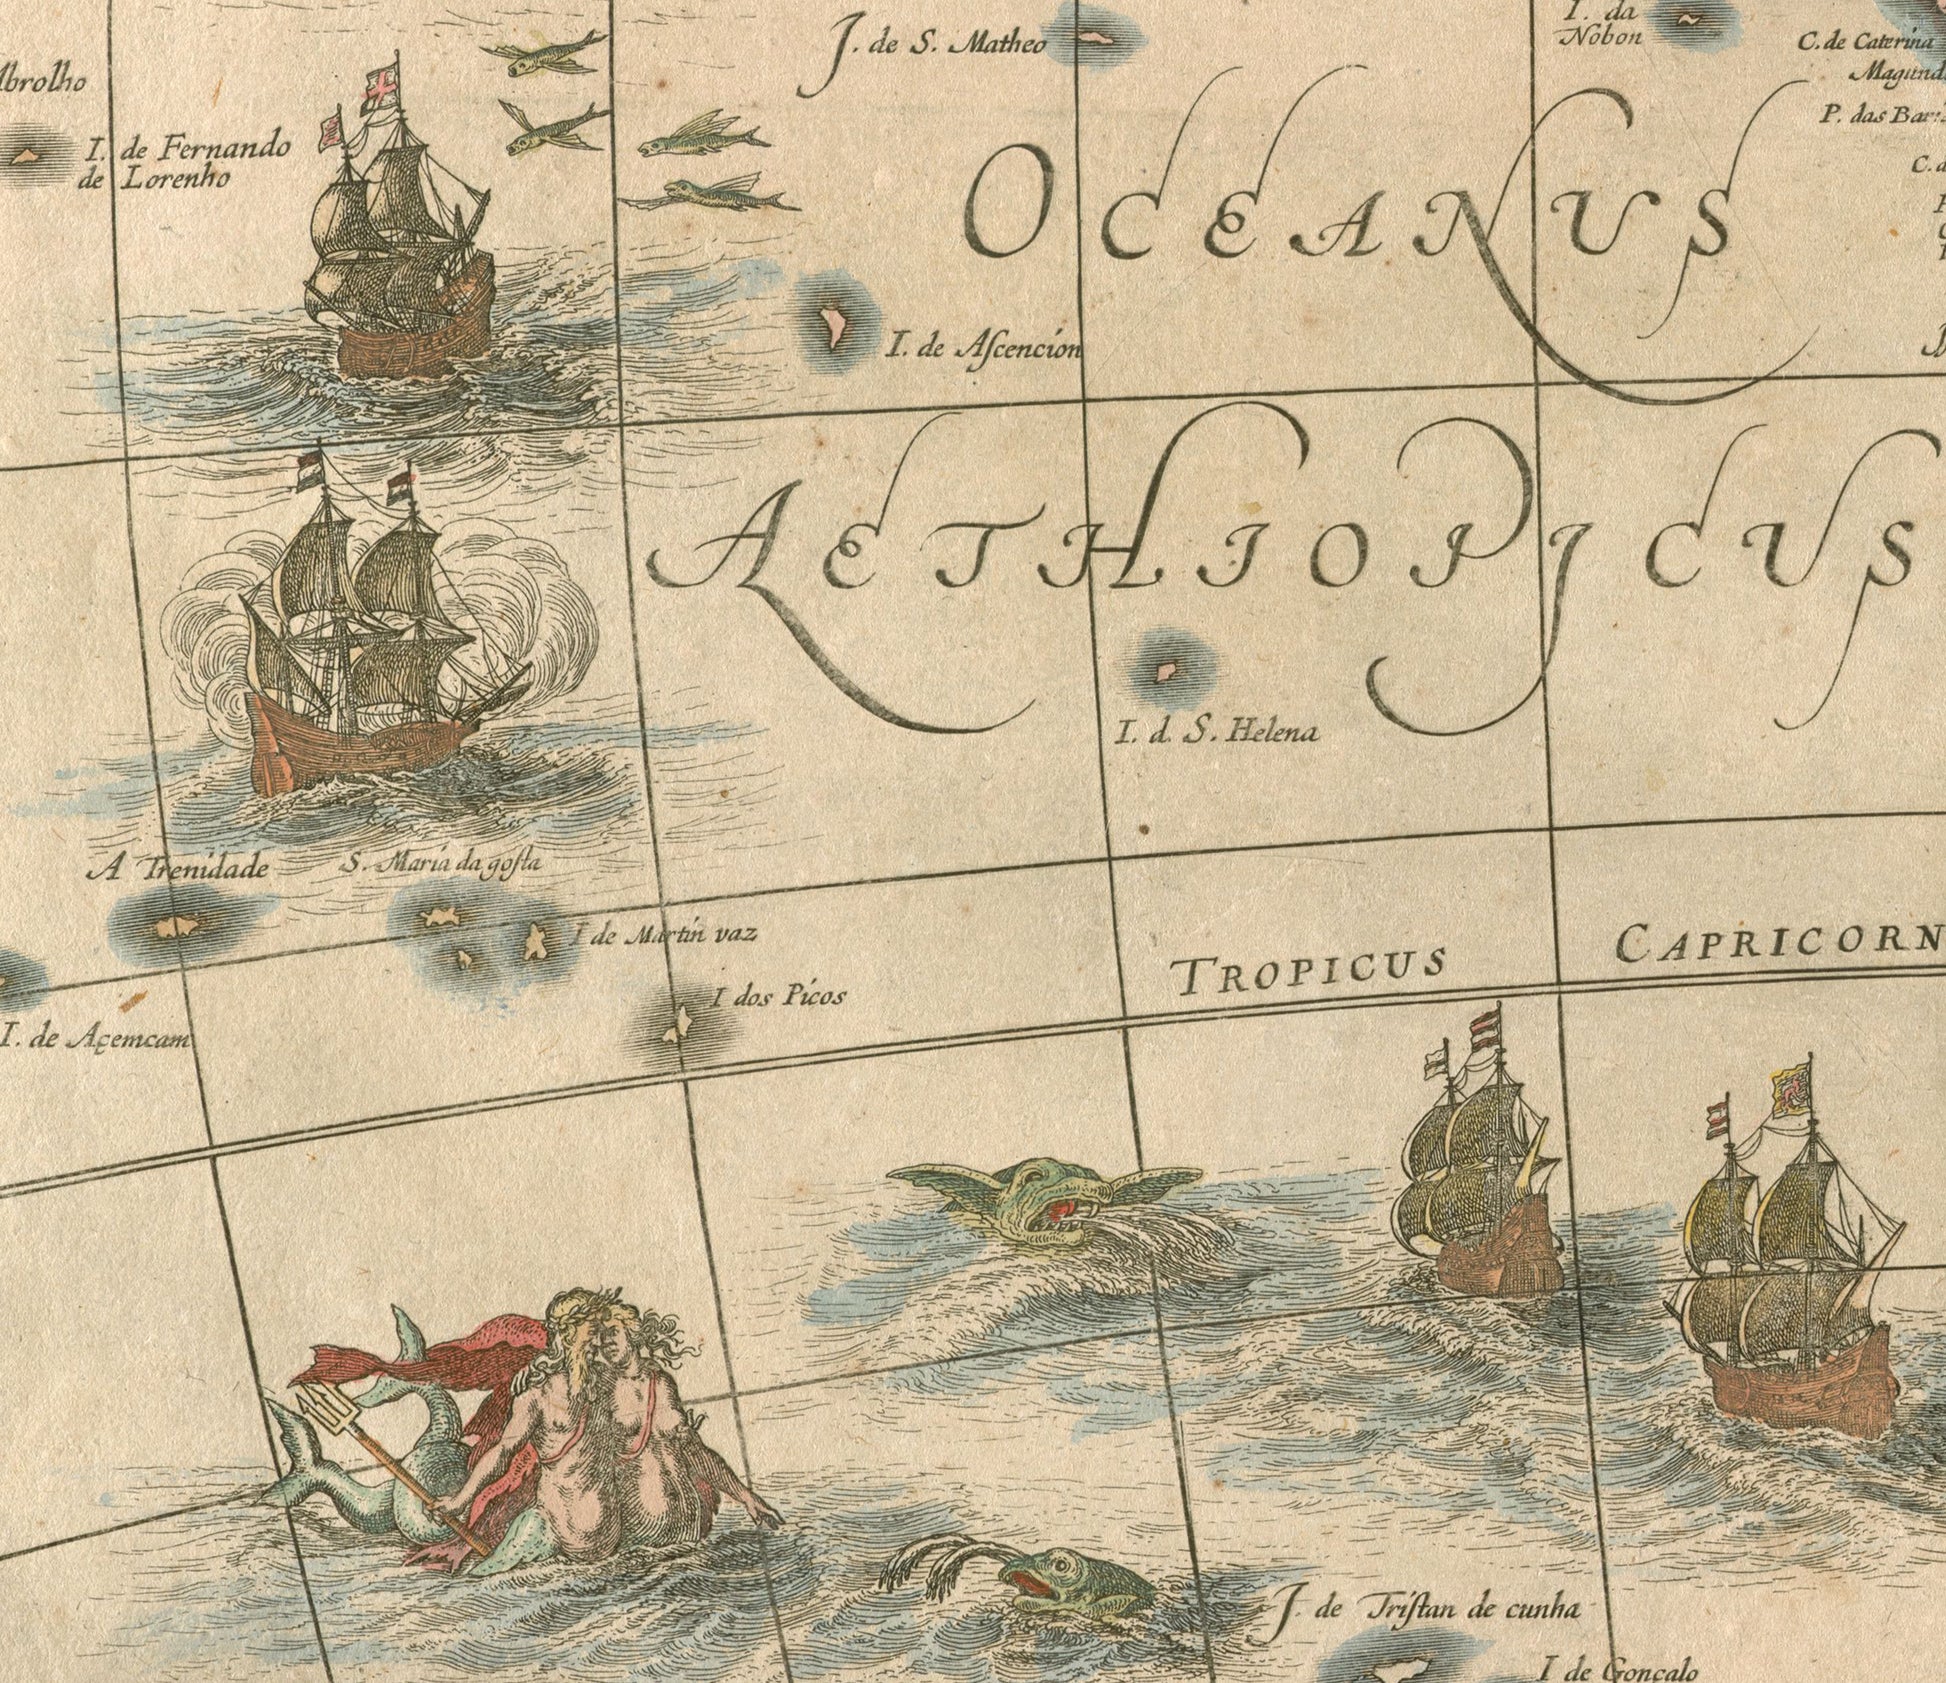 I. da
Nobon
J. de S. Matheo
C. de Caterina
Abrolho
P. das
I. de Fernando
de Lorenho
OCEANUS
I. de Aſcencion
AETHIOPICUS
I. d. S. Helena
A Trenidade
S. Maria da goſta
I de Martin vaz
TROPICUS CAPRICORN
I dos Picos
I. de Açemcam
J. de Triſtan de cunha
I de Goncalo